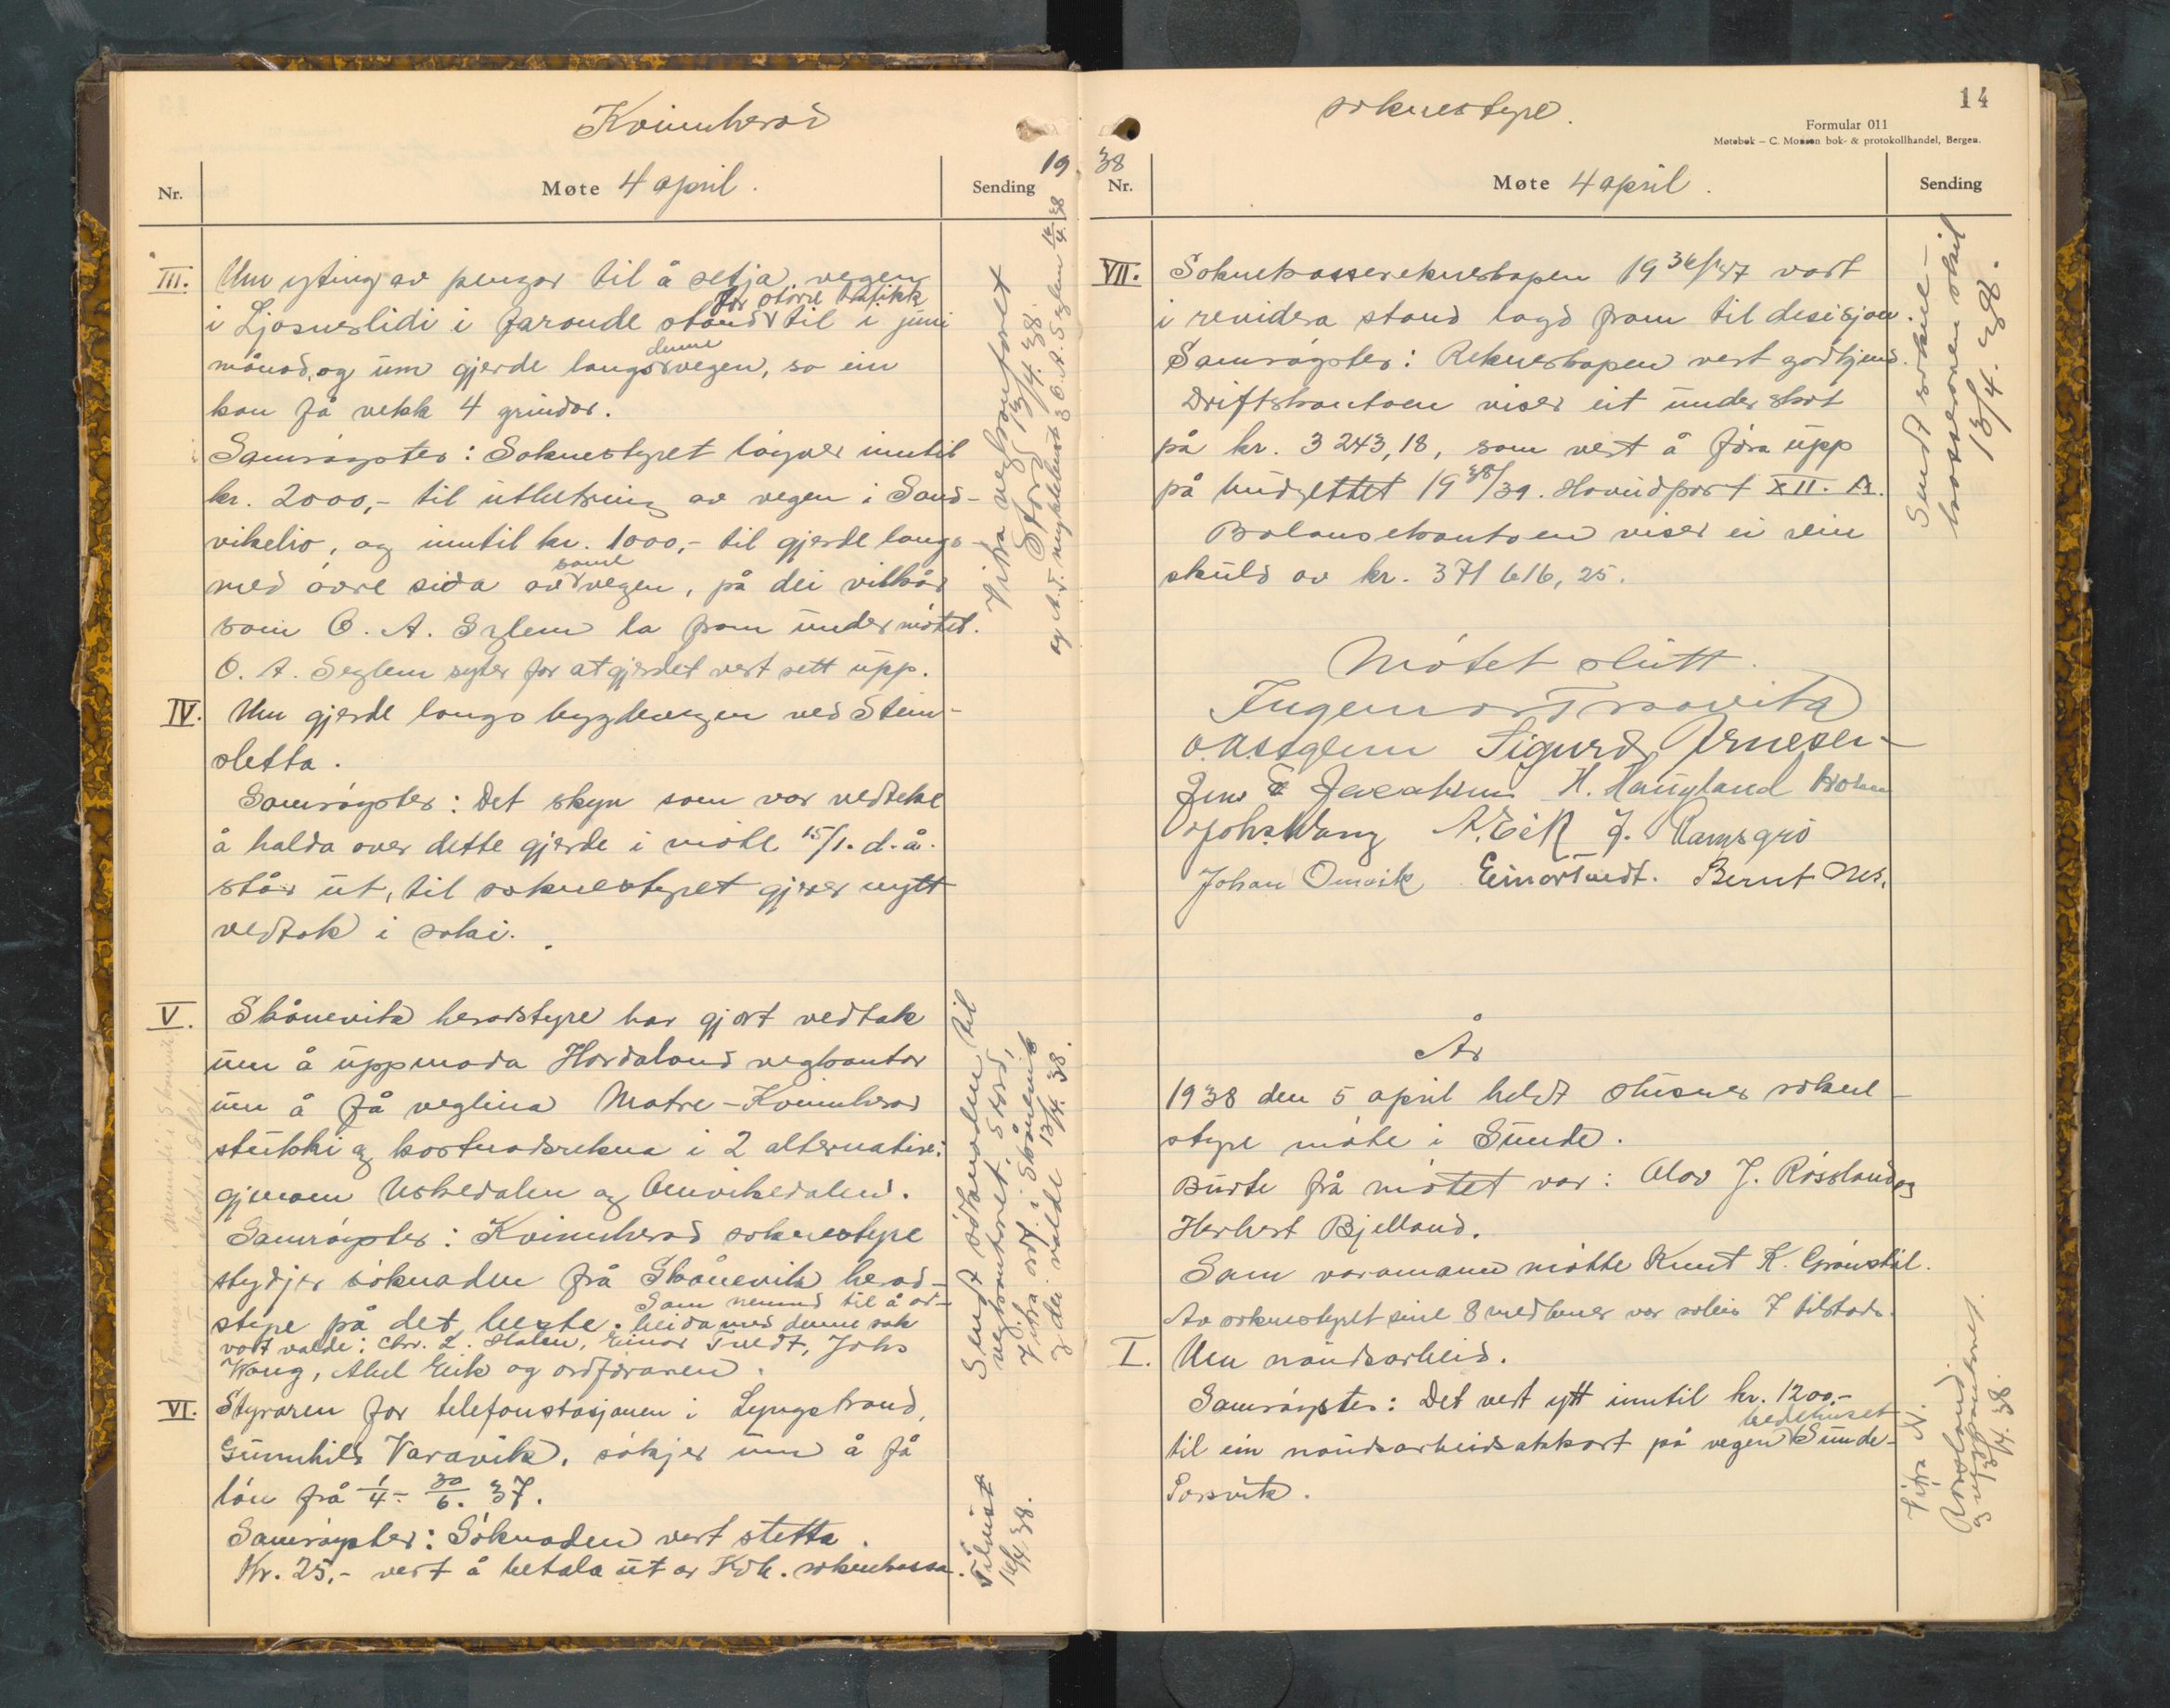 Kvinnherad
19
Nr.
Møte 4 april.
Sending
III.
Um yting av pengar til å setja vegen
for større trafikk
i Ljosneslidi i farande stand til i juni
denne
månad, og um gjerde langs vegen, so ein
kan få vekk 4 grindar.
Samrøystes: Soknestyret løyver inntil
kr. 2000,- til utbetring av vegen i Sand-
vikelio, og inntil kr. 1000,- til gjerde langs-
same
med øvre sida av vegen, på dei vilkår
som O. A. Seglem la fram under møtet.
O. A. Seglem syter for at gjerdet vert sett upp.
Vitra vegkontoret
Stord 13/4. 38.
O. A. Seglem 14/4. 38
IV.
Um gjerde langs bygdevegen ved Stein-
sletta.
Samrøystes: Det skyn som var vedteke
å halda over dette gjerde i møte 15/1. d.å.
står ut, til soknestyret gjerer nytt
vedtak i saki.
V.
Skånevik heradstyre har gjort vedtak
um å uppmoda Hordaland vegkontor
um å få veglina Matre-Kvinnherad
stukki og kostnadsrekna i 2 alternativ:
gjenom Uskedalen og Omvikedalen.
Samrøystes: Kvinnherad soknestyre
stydjer søknaden frå Skånevik herad-
Som nemnd til å ar-
styre på det beste. beida med denne sak
vart valde: Chr. L. Halen, Einar Tvedt, Johs
Wang, Abel Eik og ordføraren.
Sendt søknaden til
vegkontoret, Stord,
Vitra ordf. i Skånevik
og dei valde 13/4. 38.
VI.
Styraren for telefonstasjonen i Lyngstrand,
Gunnhild Varavik, søkjer um å få
løn frå 1/4 - 30/6. 37.
Samrøystes: Søknaden vert stetta.
Kr. 25,- vert å betala ut av Kvh. soknekassa.
Tilvist
16/4. 38.
soknestyre.
14
Formular 011
Møtebok – C. Monsen bok- & protokollhandel, Bergen.
38
Nr.
Møte 4 april.
Sending
VII.
Soknekasserekneskapen 1936/37 vart
i revidera stand lagd fram til desisjon.
Samrøystes: Rekneskapen vert godkjend.
Driftskontoen viser eit underskot
på kr. 3 243,18, som vert å føra upp
på budgettet 1938/39. Hovudpost XII. A.
Balansekontoen viser ei rein
skuld av kr. 371 616, 25.
Sendt sokne-
kasseraren
13/4. 38.
Møtet slutt.
Ingemar Traavik
O.A.Seglem Sigurd Arnesen
Jens E Jacobsen H. Haugland
Johs. Wang A. Eik J. Ramsgrø
Johan Omvik Einar Tvedt. Bernt Nes.
År
1938 den 5 april heldt Husnes sokne-
styre møte i Sunde.
Burte frå møtet var: Olav J. Røssland og
Herbert Bjelland.
Som varamann møtte Knut K. Grønstøl.
Av soknestyret sine 8 medlemer var soleis 7 tilstade.
I.
Um naudsarbeid.
Samrøystes: Det vert ytt inntil kr. 1200,-
bedehuset
til ein naudsarbeidsakkort på vegen Sunde-
Porsvik.
Vitra N.
Røssland
og vegkontoret
13/4. 38.